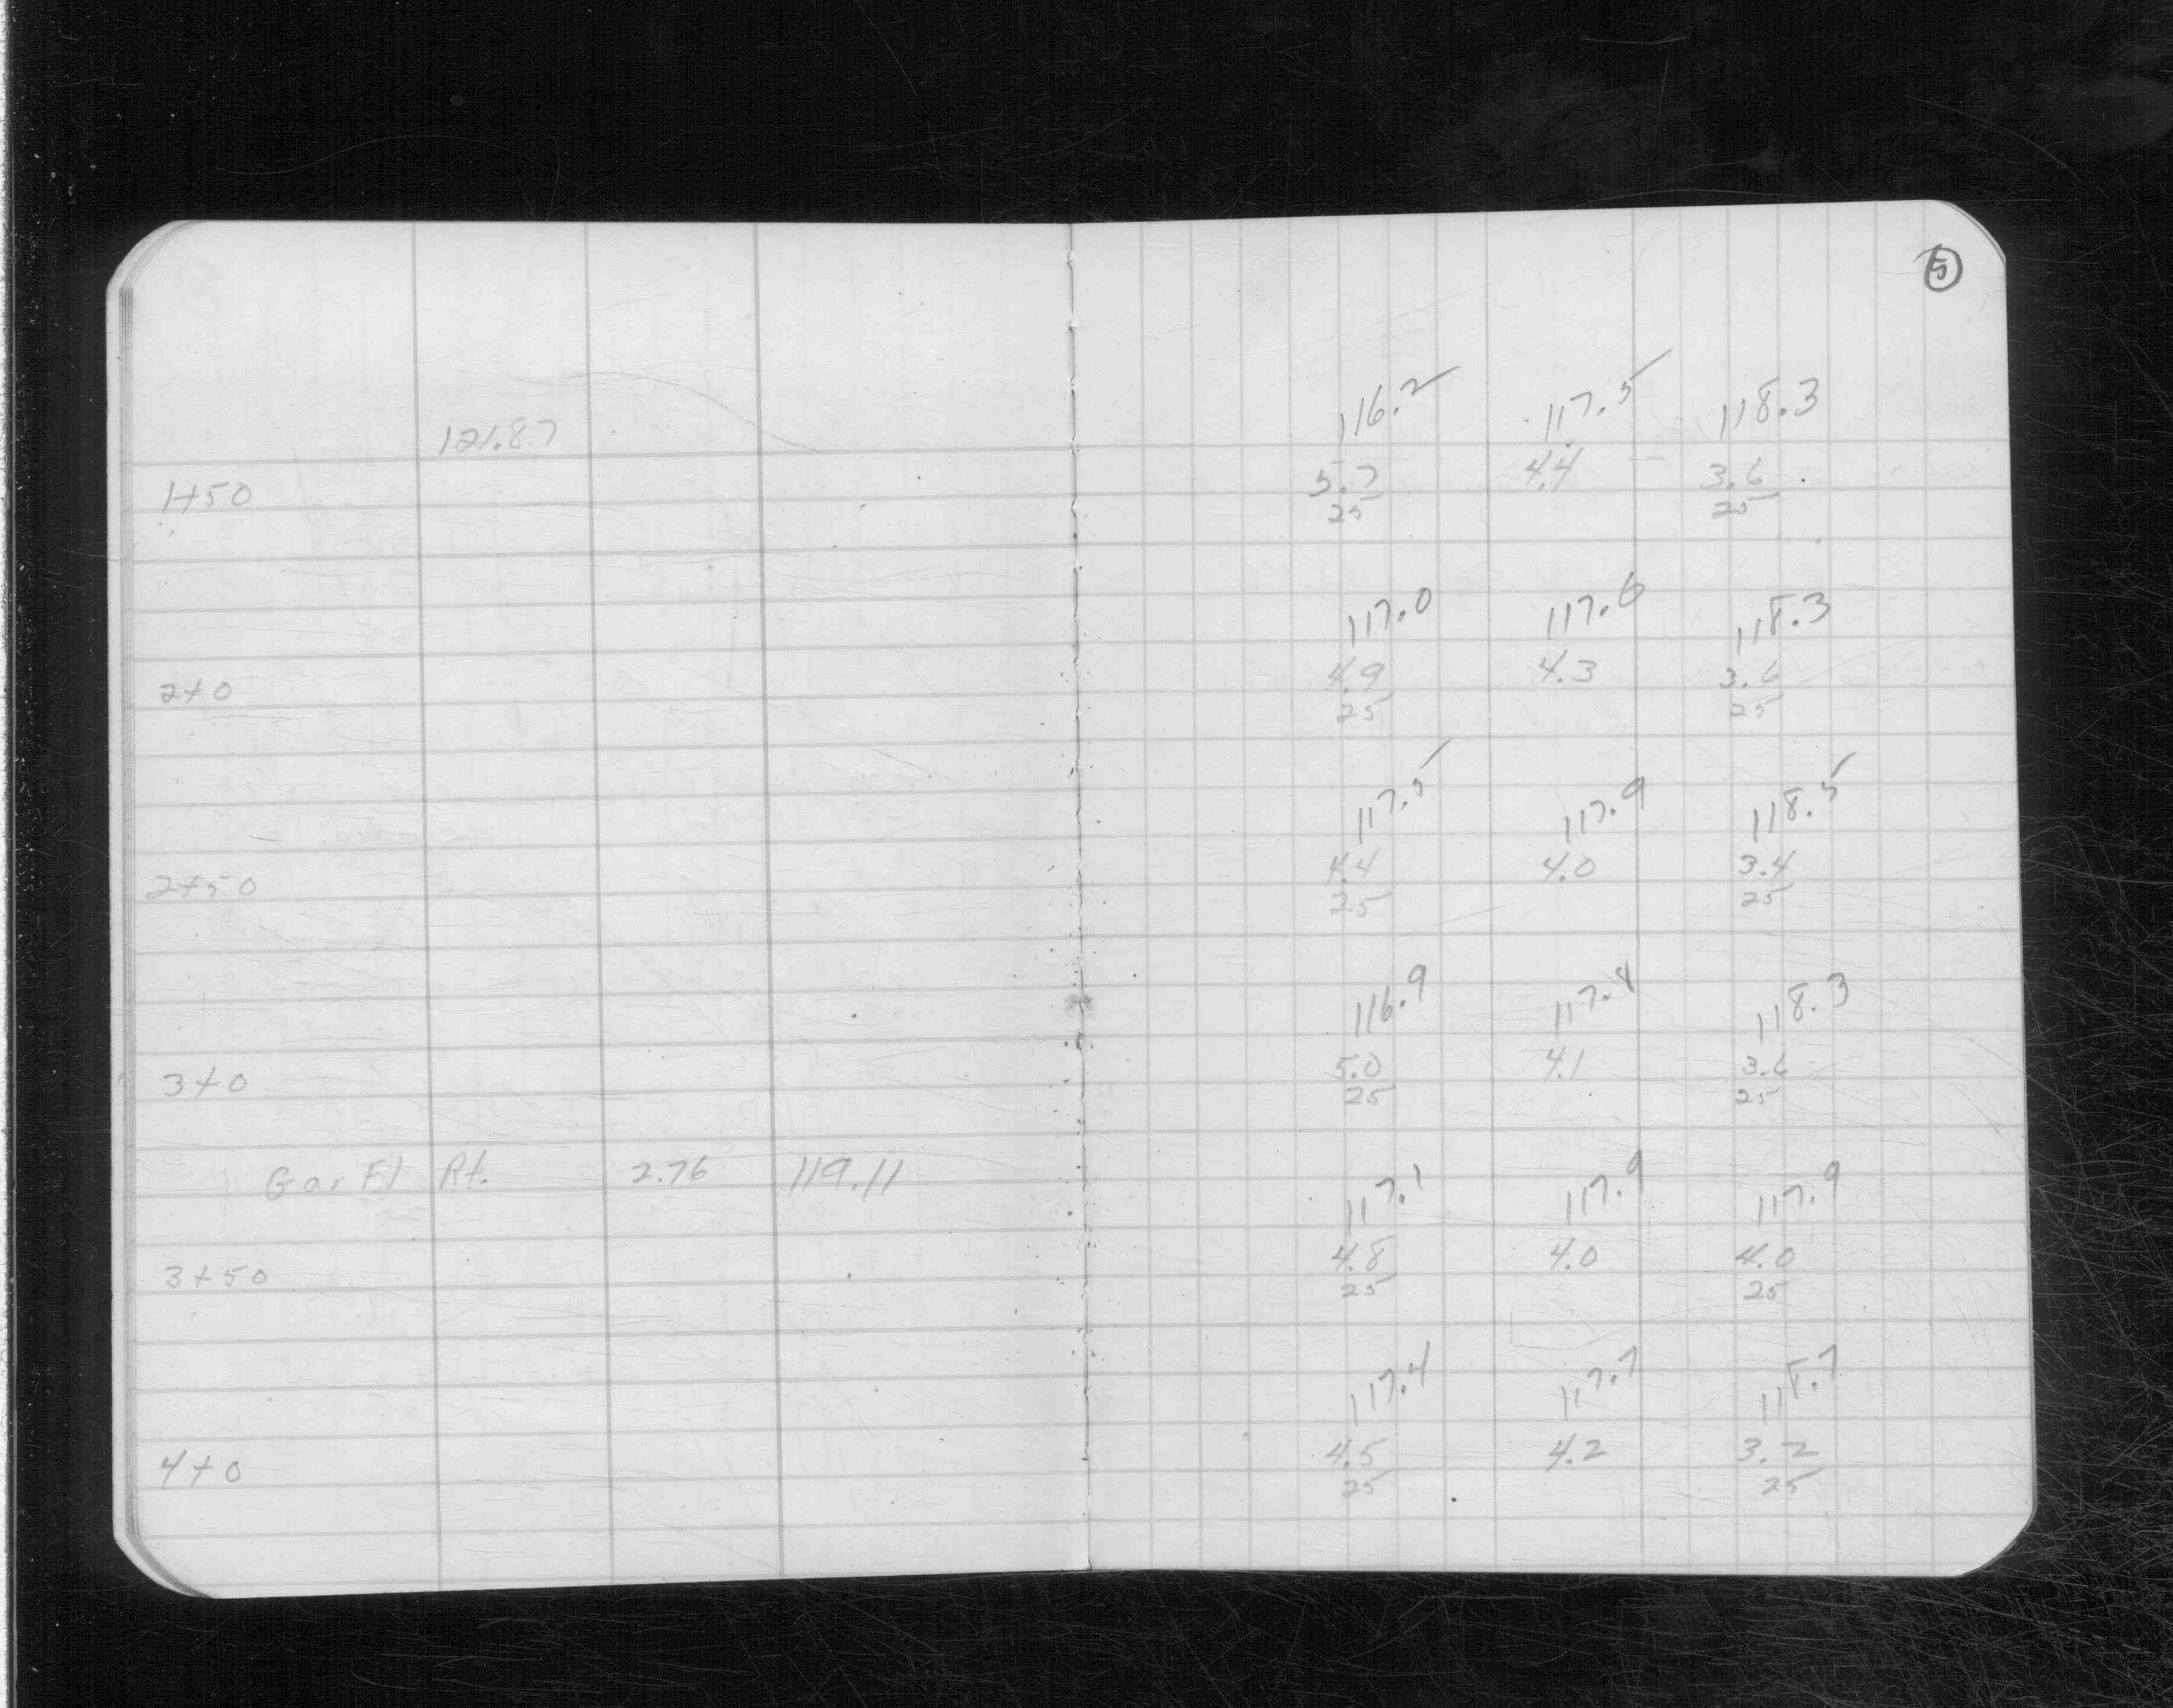 5
121.87
116.2 117.5 118.3
1+50 5.7 4.4 3.6
25 25
117.0 117.6 118.3
2+0 4.9 4.3 3.6
25 25
117.5 117.9 118.5
2+50 4.4 4.0 3.4
25 25
116.9 117.8 118.3
3+0 5.0 4.1 3.6
25 25
Gar Fl Rt. 2.76 119.11
117.1 117.9 117.9
3+50 4.8 4.0 4.0
25 25
117.4 117.7 118.7
4+0 4.5 4.2 3.2
25 25